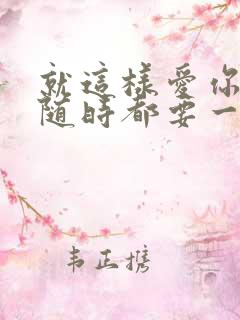 就這樣愛你
随時都要一
韦正携